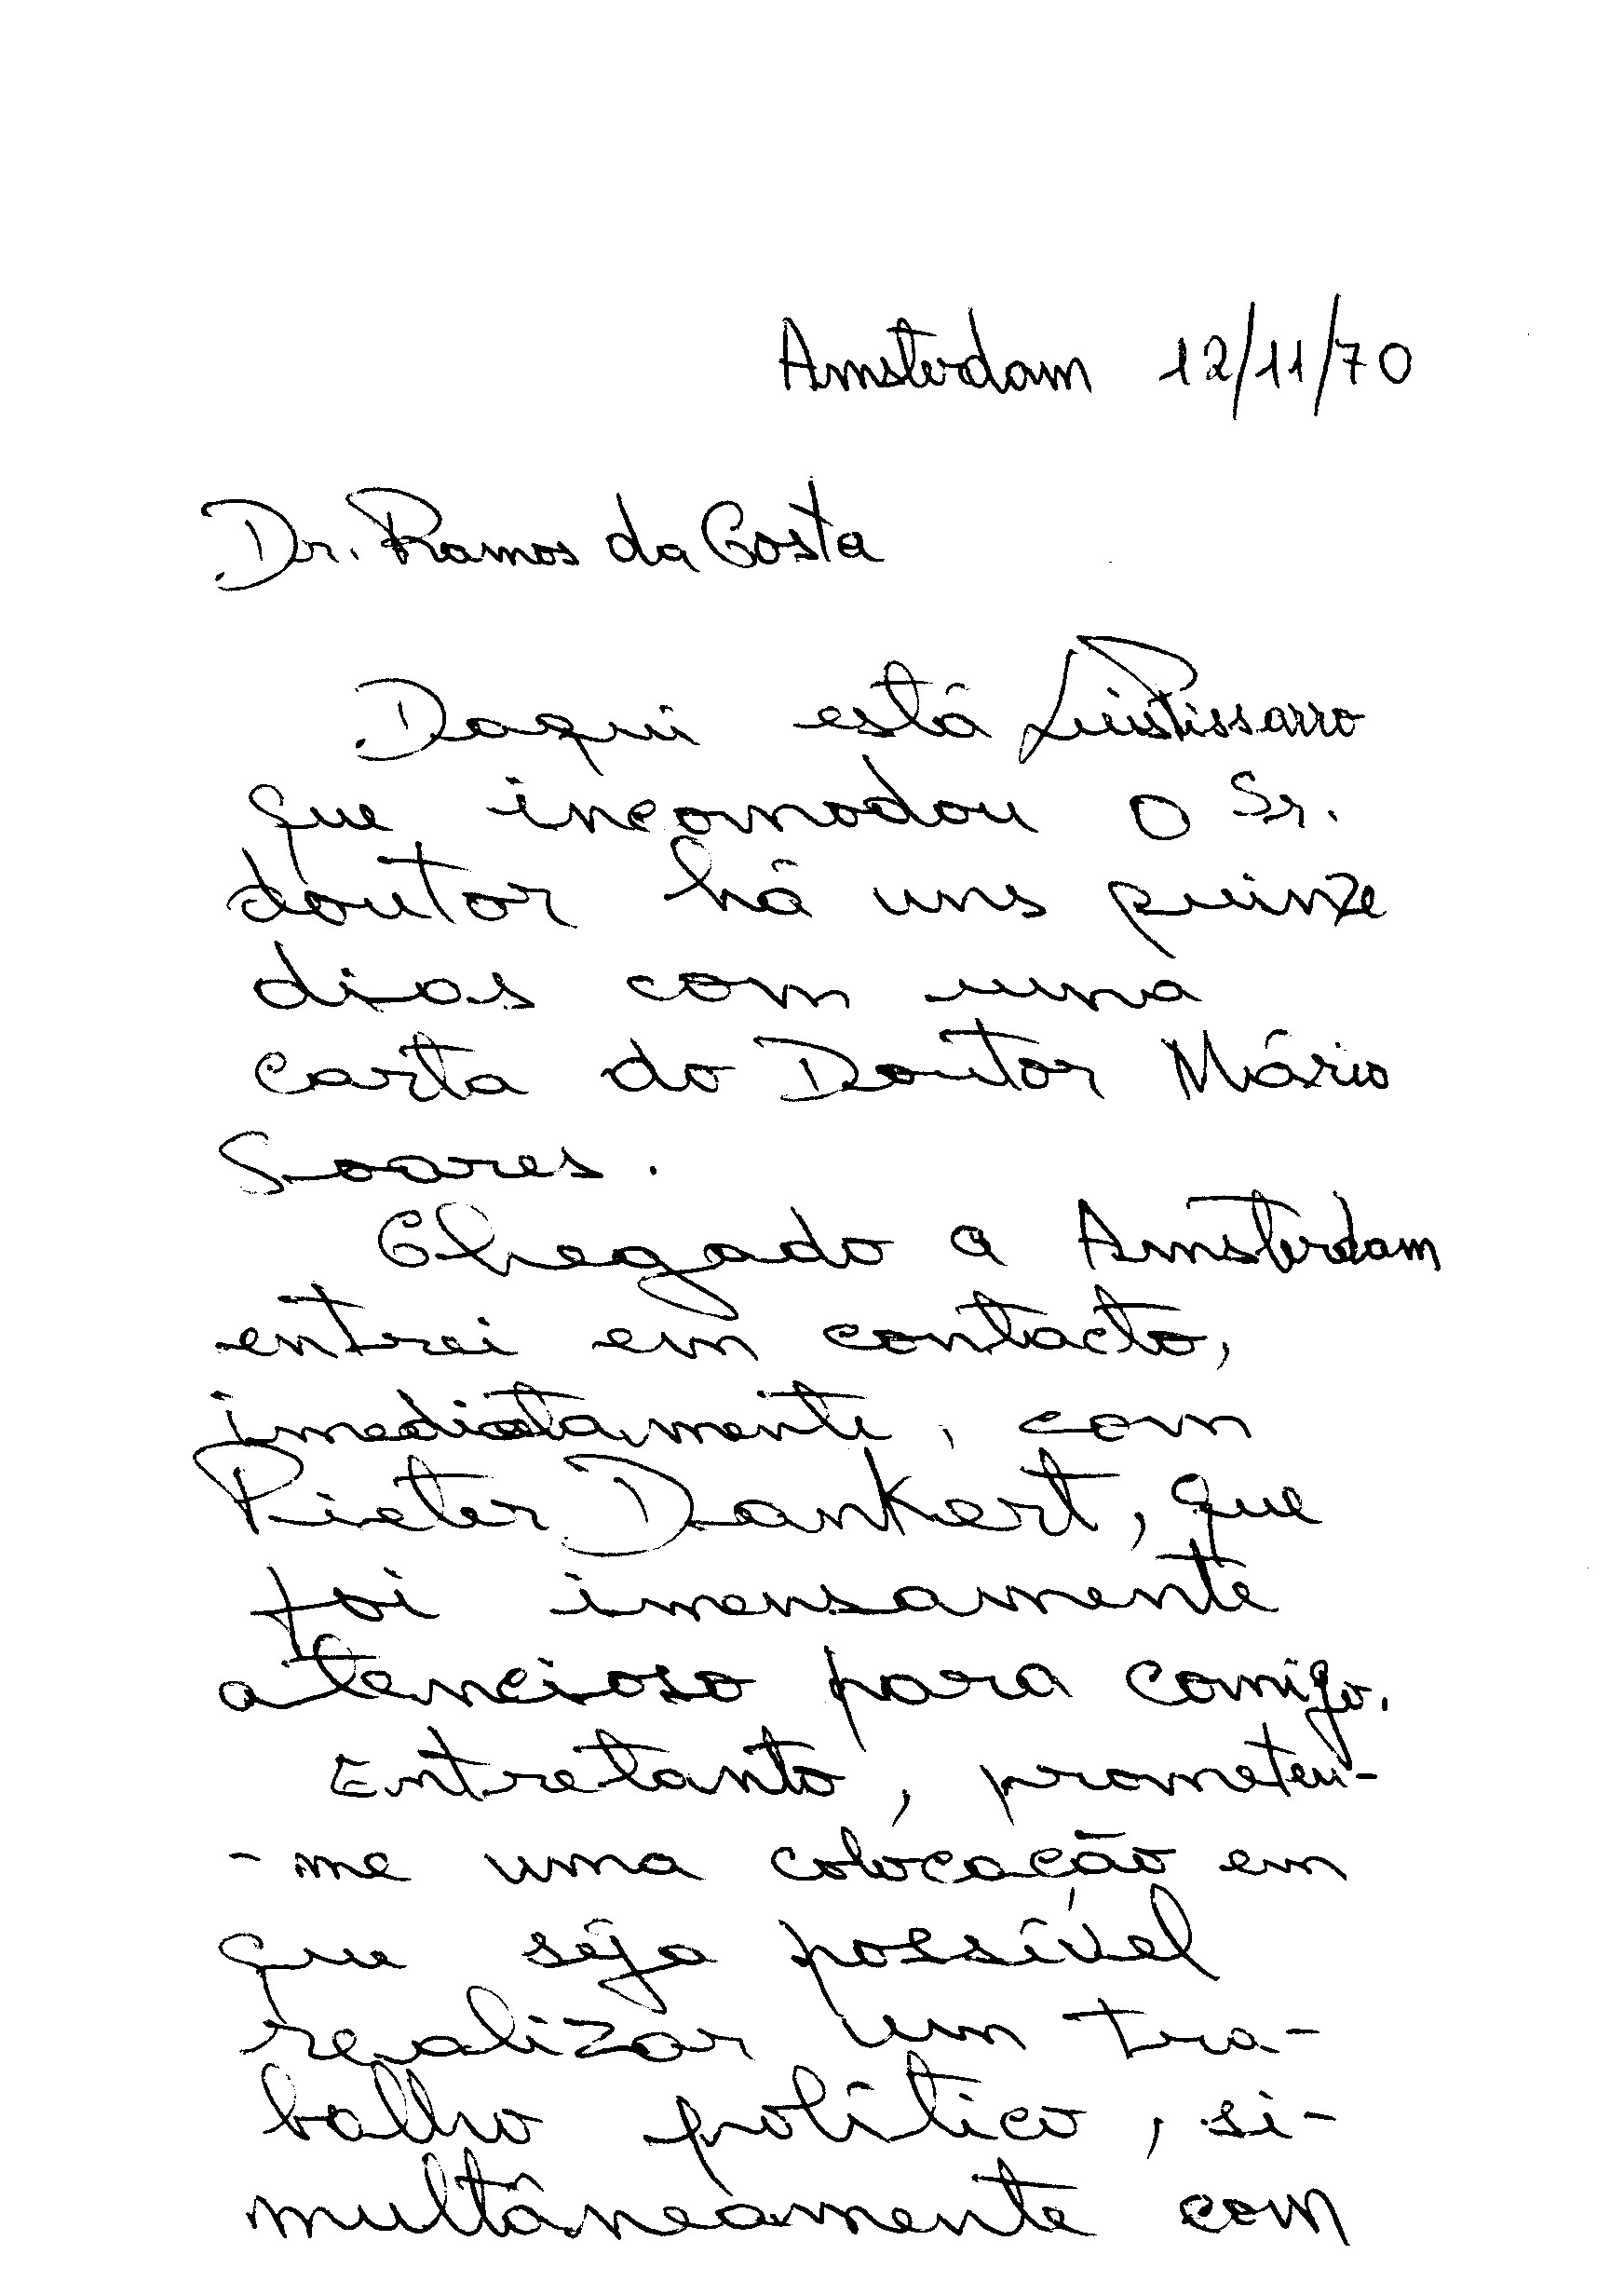 Amsterdam 12/11/70
Dr. Ramos da Costa
Daqui está Luís Pissarro
que incomodou o Sr.
doutor há uns quinze
dias com uma
carta do Doutor Mário
Soares.
Chegado a Amsterdam
entrei em contacto,
imediatamente, com
Pieter Dankert, que
foi imensamente
atencioso para comigo.
Entretanto, prometeu-
-me uma colocação em
que seja possível
realizar um tra-
balho político, si-
multâneamente com